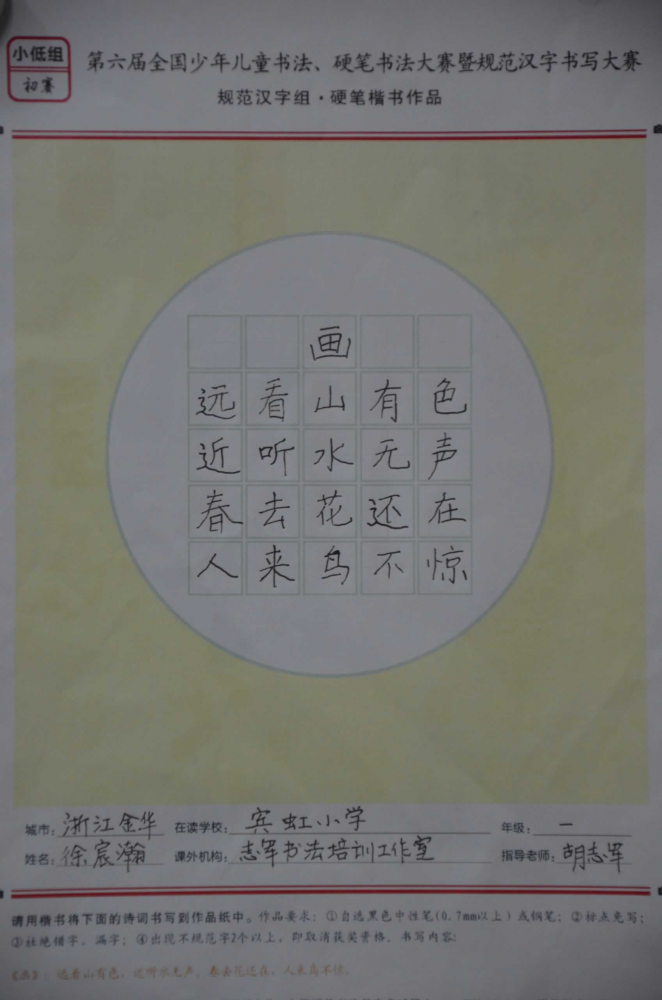 小低组
初赛
第六届全国少年儿童书法、硬笔书法大赛暨规范汉字书写大赛
规范汉字组·硬笔楷书作品
画
远看山有色
近听水无声
春去花还在
人来鸟不惊
城市：浙江金华 在读学校：宾虹小学 年级：一
姓名：徐宸瀚 课外机构：志军书法培训工作室 指导老师：胡志军
请用楷书将下面的诗词书写到作品纸中。作品要求：①自选黑色中性笔(0.7mm以上)或钢笔；②标点免写；
③杜绝错字，漏字；④出现不规范字2个以上，即取消获奖资格。书写内容：
《画》：远看山有色，近听水无声。春去花还在，人来鸟不惊。